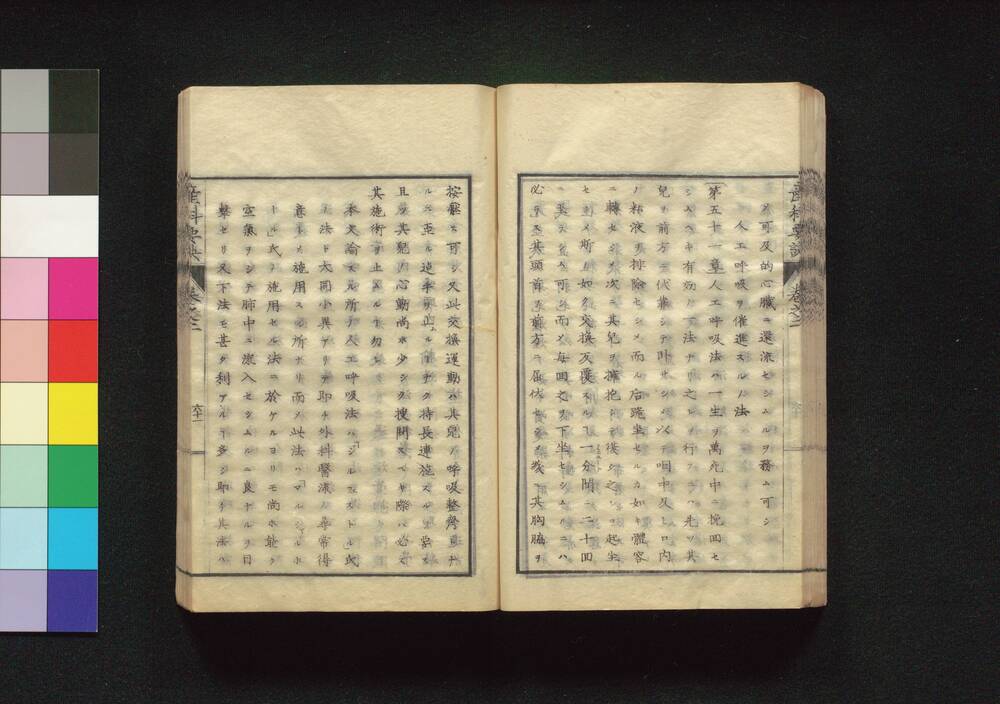 可及的心臓ニ還流セシムルヲ務ム可シ
人工呼吸ヲ催進スルノ法
第五十一章人工呼吸法ハ一生ヲ萬死中ニ挽回セ
シムヘキ有効ノ法ナリ之ヲ行フニハ先ツ其
兒ヲ前方ニ伏業シテ
咽中及ヒ口内
ノ粘液ヲ排除セシメ而ル后跪坐セルカ如キ體容
ニ轉セシメ次ニ其兒ヲ擁抱シ後之ヲ起坐
セシメ斯ノ如ク交換反覆スル一分間ニ二十回
可シ而メ毎回之ヲ下坐セシムルニハ
必ス其頭首ヲ前方ニ屈伏セシメ其胸脇ヲ
按壓ス可シ又此交換運動ハ其兒ノ呼吸整齊
ルニ至ル迄手ヲ止ムルナク持長連施
且ツ其兒ノ心動尚ホ少シク捜聞スヘキ際ハ必ス
其施術ヲ止ムル勿レ
本文論スル所ノ人工呼吸法ハ「シルフェストル」氏
法ト大同小異ナリ即チ外科醫流ノ尋常得
意トメ施用スル所ナリ而メ此法ハ「マルシャルホ
ー」氏ノ施用セル法ニ於ケルヨリモ尚ホ能ク
空氣ヲシテ肺中ニ流入セシムルニ良ナルヲ目
撃セリ又下法モ甚タ利アル多シ即チ其法ハ
産科要訣
卷之三
六十二